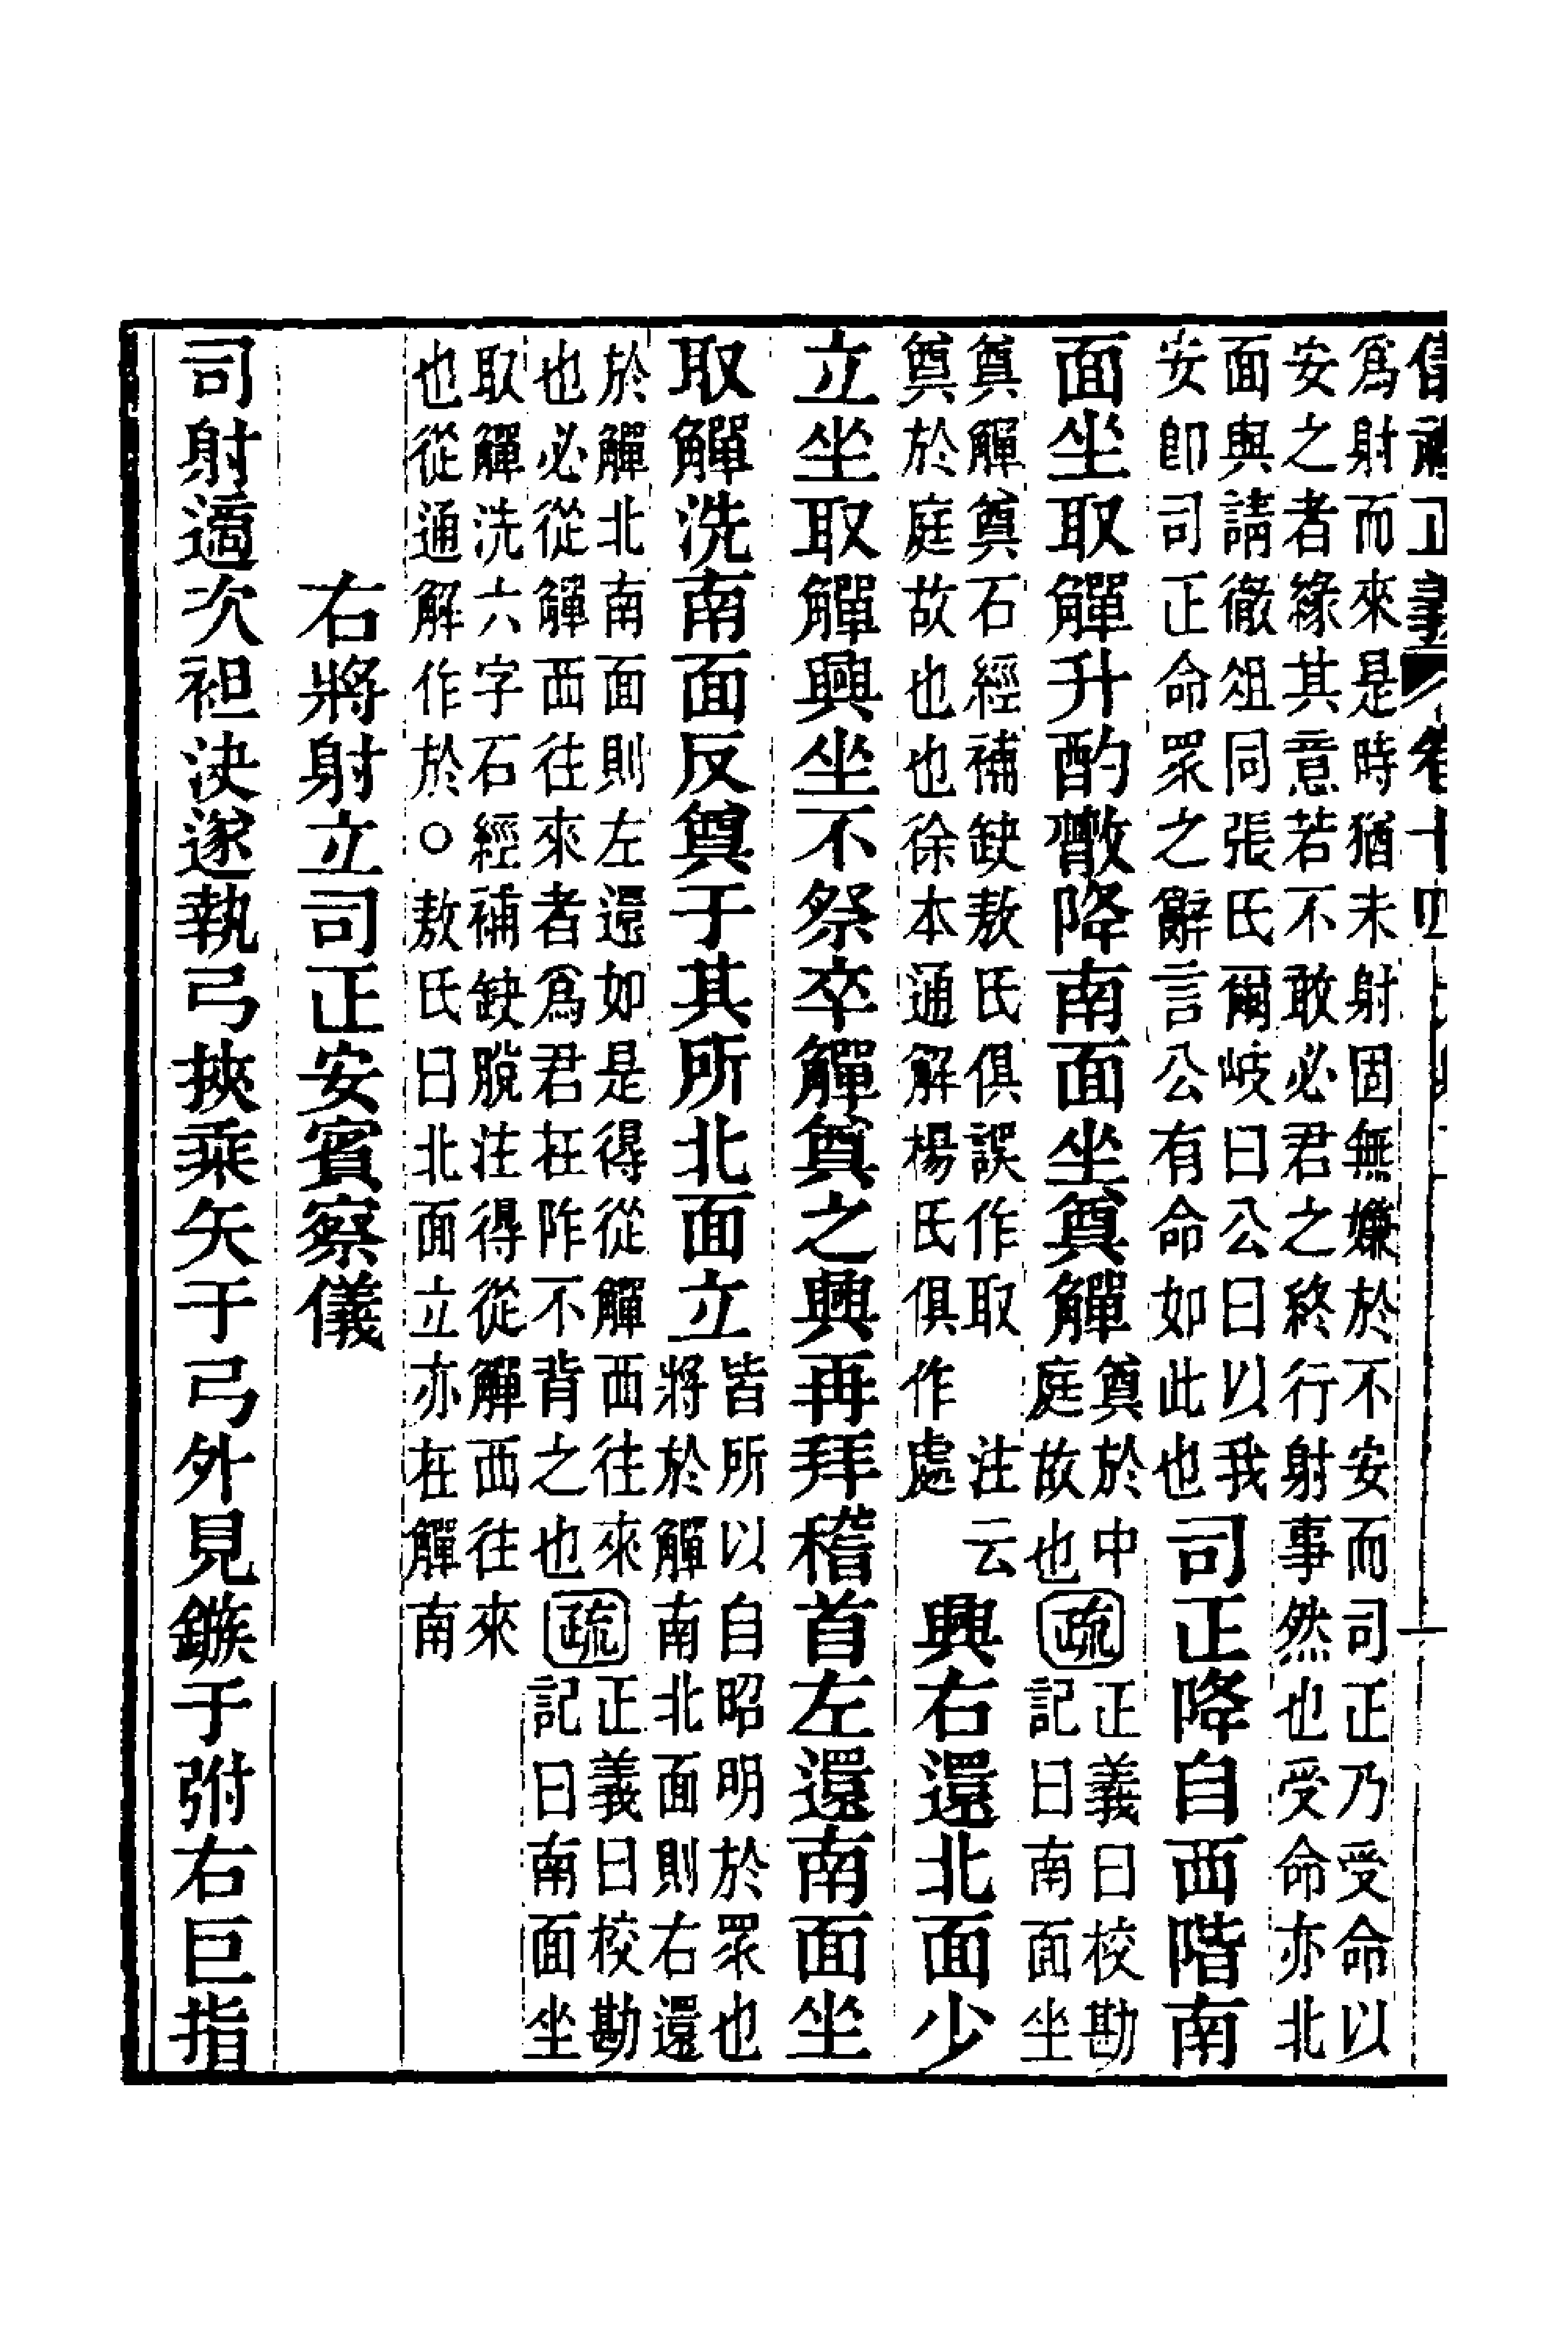 儀禮正義 卷十四
爲射而來是時猶未射固無嫌於不安而司正乃受命以
安之者緣其意若不敢必君之終行射事然也受命亦北
面與請徹俎同張氏爾岐曰公曰以我
安卽司正命眾之辭言公有命如此也
司正降自西階南
面坐取觶升酌散降南面坐奠觶
奠於中
庭故也
疏
正義曰校勘
記曰南面坐
奠觶奠石經補缺敖氏俱誤作取 注云
奠於庭故也也徐本通解楊氏俱作處
興右還北面少
立坐取觶興坐不祭卒觶奠之興再拜稽首左還南面坐
取觶洗南面反奠于其所北面立
皆所以自昭明於眾也
將於觶南北面則右還
於觶北南面則左還如是得從觶西往來
也必從觶西往來者爲君在阼不背之也
疏
正義曰校勘
記曰南面坐
取觶洗六字石經補缺脫注得從觶西往來
也從通解作於○敖氏曰北面立亦在觶南
右將射立司正安賓察儀
司射適次袒決遂執弓挾乘矢于弓外見鏃于弣右巨指